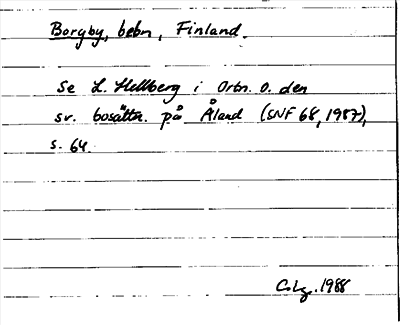 Borgby, bebn, Finland.
Se L. Hellberg i Ortn. o. den
sv. bosättn. på Åland (SNF 68, 1987),
s. 64.
C.Lg. 1988